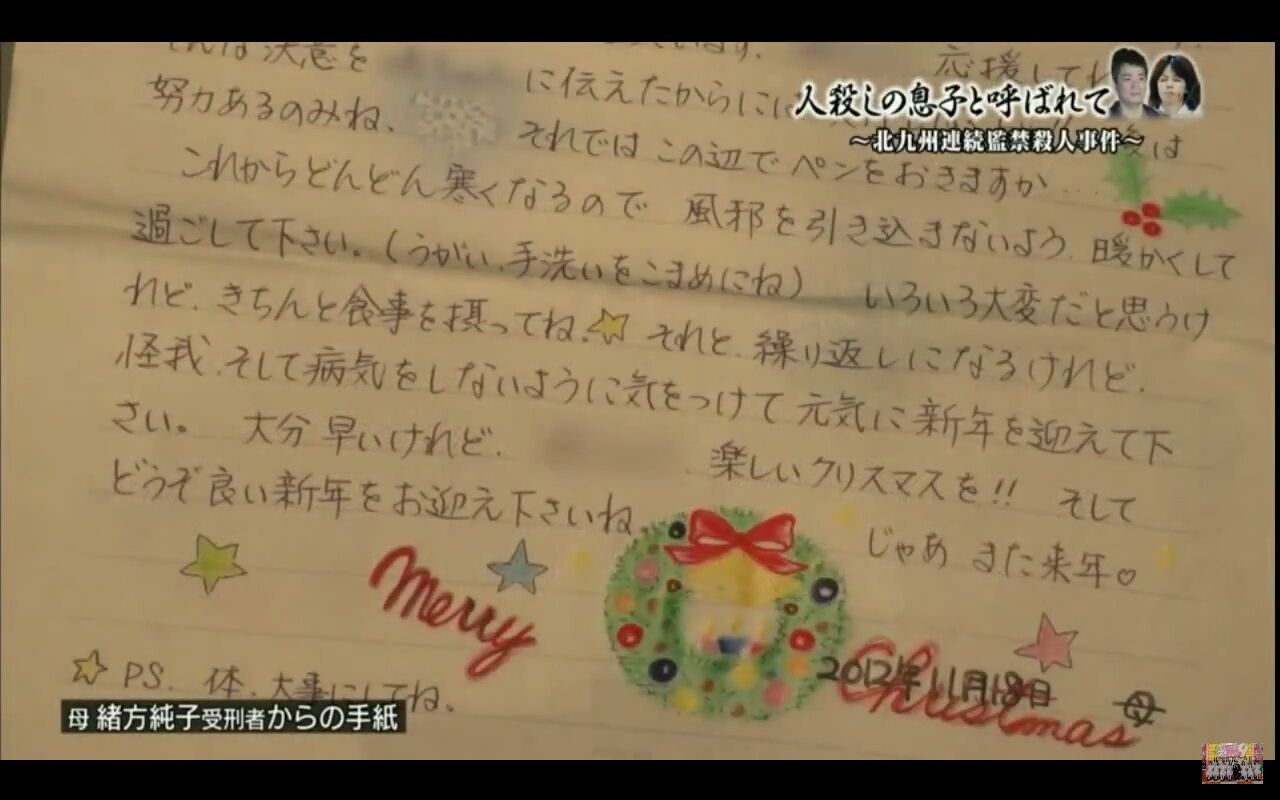 そんな決意を
応援してね
に伝えたからには
努力あるのみね、
それでは この辺でペンをおきますか…
は
これからどんどん寒くなるので 風邪を引き込まないよう、暖かくして
過ごして下さい。(うがい、手洗いをこまめにね) いろいろ大変だと思うけ
れど、きちんと食事を摂ってね。それと、繰り返しになるけれど、
怪我、そして病気をしないように気をつけて 元気に新年を迎えて下
さい。 大分早いけれど、 楽しいクリスマスを!! そして
どうぞ良い新年をお迎え下さいね。
じゃあ また来年♡
Merry Christmas
2012年11月18日 母
PS. 体、大事にしてね。
人殺しの息子と呼ばれて
～北九州連続監禁殺人事件～
母 緒方純子受刑者からの手紙